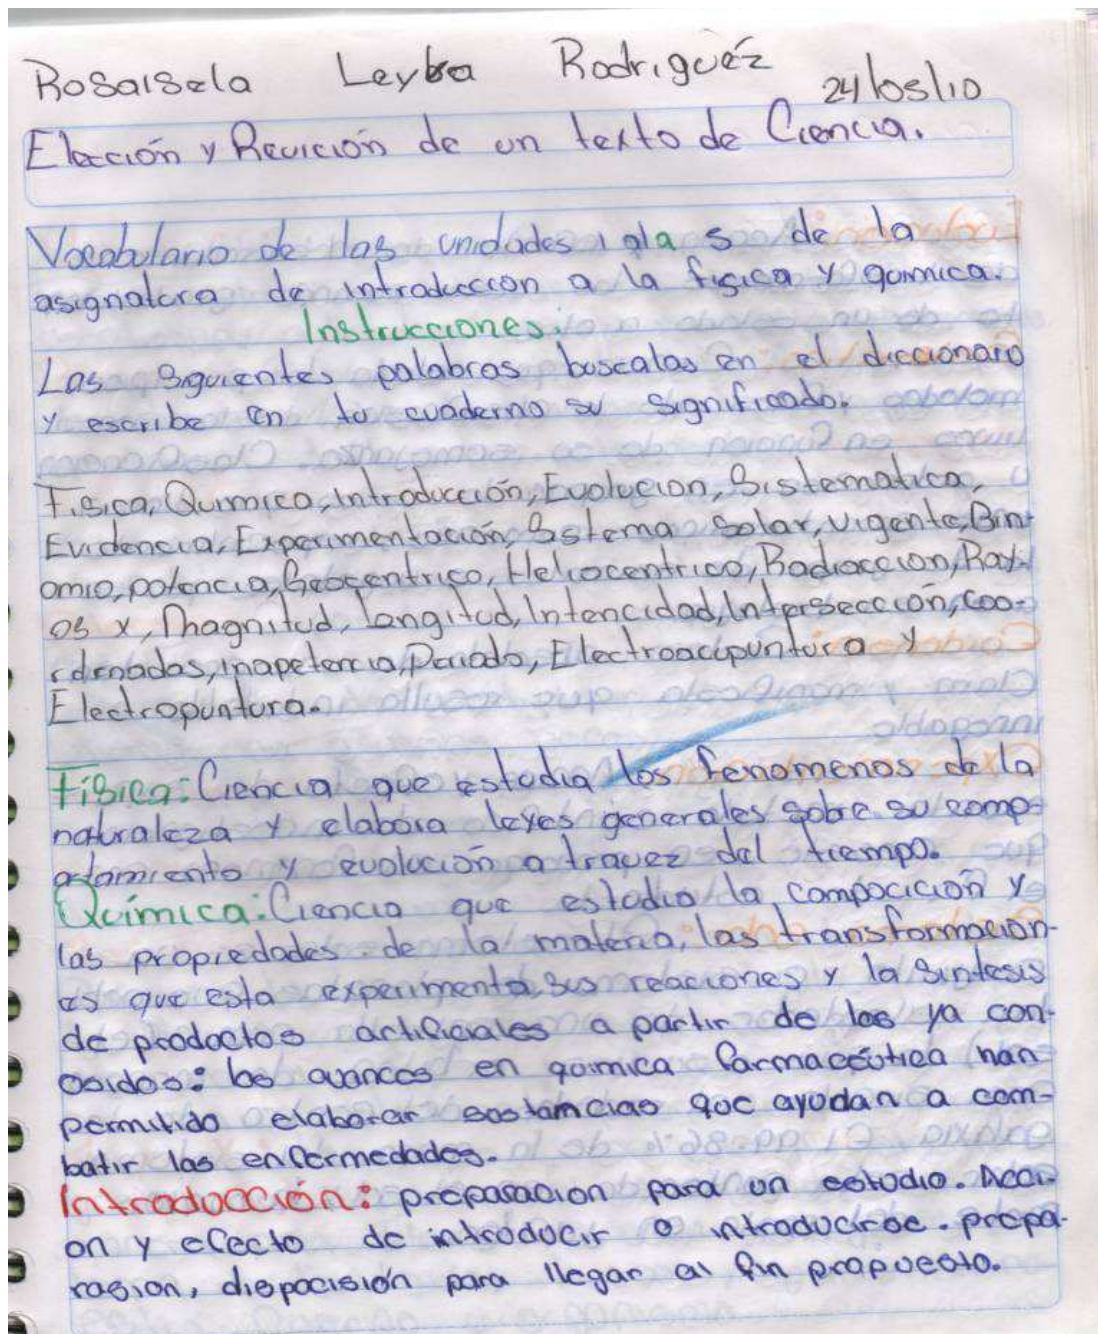 Rosaisela Leyba Rodriguéz
24/05/10
Elección y Revición de un texto de Ciencia.
Vocabulario de las unidades 1 a la 5 de la
asignatura de introduccion a la fisica y quimica.
Instrucciones:
Las siguientes palabras buscalas en el diccionario
y escribe en tu cuaderno su significado.
Fisica, Quimica, Introducción, Evolucion, Sistematica,
Evidencia, Experimentación, Sistema Solar, vigente, Bin-
omio, potencia, Geocentrico, Heliocentrico, Radiaccion, Ray-
os x, Magnitud, Longitud, Intencidad, Intersección, coo-
rdenadas, inapetencia, Periodo, Electroacupuntura y
Electropuntura.
Física: Ciencia que estudia los fenomenos de la
naturaleza y elabora leyes generales sobre su comp-
ortamiento y evolución a travez del tiempo.
Química: Ciencia que estudia la compocición y
las propiedades de la materia, las transformacion-
es que esta experimenta, sus reacciones y la sintesis
de productos artificiales a partir de los ya con-
osidos: los avances en quimica farmacéutica han
permitido elaborar sustancias que ayudan a com-
batir las enfermedades.
Introducción: preparacion para un estudio. Acci-
on y efecto de introducir o introducirse. prepa-
rasion, dispocisión para llegar al fin propuesto.